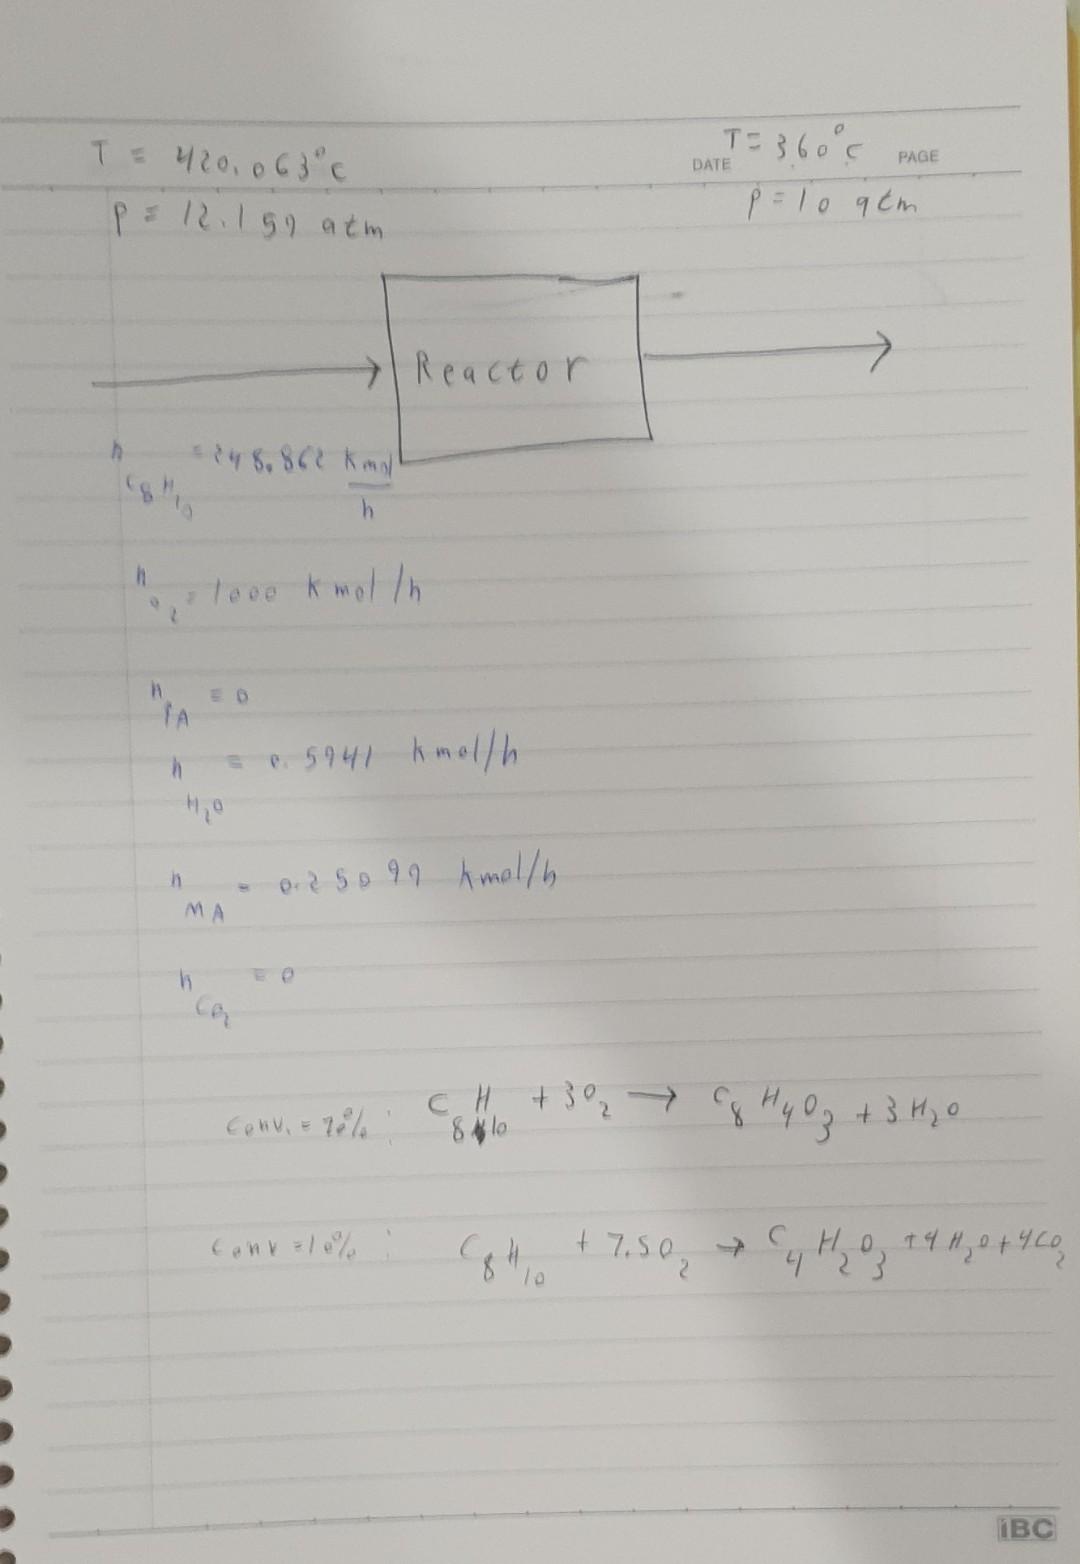 T = 420.063°C
T = 360°C
DATE
PAGE
P = 12.159 atm
P = 10 atm
Reactor
n C8H10 = 248.862 Kmol/h
n O2 = 1000 Kmol/h
n PA = 0
n H2O = 0.5941 Kmol/h
n MA = 0.25099 Kmol/h
n CO2 = 0
Conv. = 70% : C8H10 + 3O2 → C8H4O3 + 3H2O
Conv = 10% : C8H10 + 7.5O2 → C4H2O3 + 4H2O + 4CO2
iBC